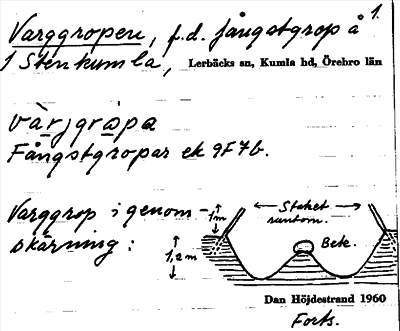 1.
Varggropen, f.d. fångstgrop å
1 Stenkumla,
Lerbäcks sn, Kumla hd, Örebro län
vàrjgrɑpɑ
Fångstgropar ek 9F7b.
Varggrop i genom-
skärning:
1m
1,2m
Staket
runtom.
Bete.
Dan Höjdestrand 1960
Forts.